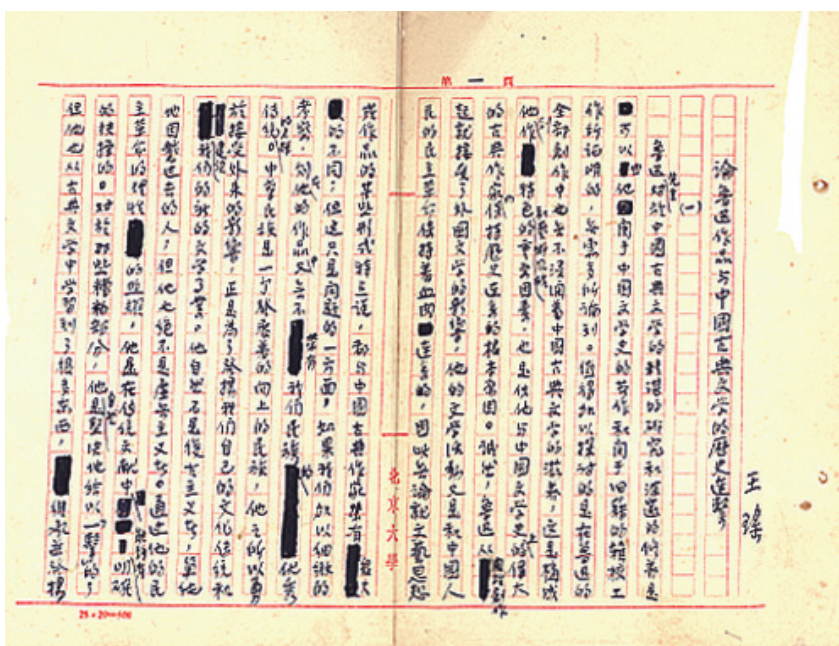 第一頁
論魯迅作品与中國古典文学的歷史連繫
王瑤
(一)
魯迅先生对於中國古典文学的精湛的研究和深邃的修養是
可以由他關于中國文学史的著作和關于旧籍的輯校工
作所証明的,無需多所論到。值得加以探討的是在魯迅的
全部創作中也無不浸潤着中國古典文学的滋养,這是構成
他作品特色的重要因素,也是使他与中國文学史上的偉大
的古典作家保持歷史連系的根本原因。誠然,魯迅从開始創作
起就接受了外國文学的影響,他的文学活動又是和中國人
民的民主革命保持着血肉連系的,因此無論就文藝思想
或作品的某些形式特点說,都与中國古典作家带有很大
的不同;但这只是問題的一方面,如果我们加以細緻的
考察,則他的作品又無不我们民族的
傳統。中華民族是一个發展着的向上的民族,他之所以勇
於接受外来的影響,正是為了發揚我们自己的文化傳統和
建設我们的新的文学事業。他自然不是復古主义者,單
地因襲过去的人,但他也絕不是虚無主义者。通过他的民
主革命家的理性的照耀,他是在傳統文献中明確
的抉擇的。对於那些糟粕部分,他是堅决地给以一擊的;
但他也从古典文学中学習到了很多东西,继承並發揚
北京大學
25×20=500